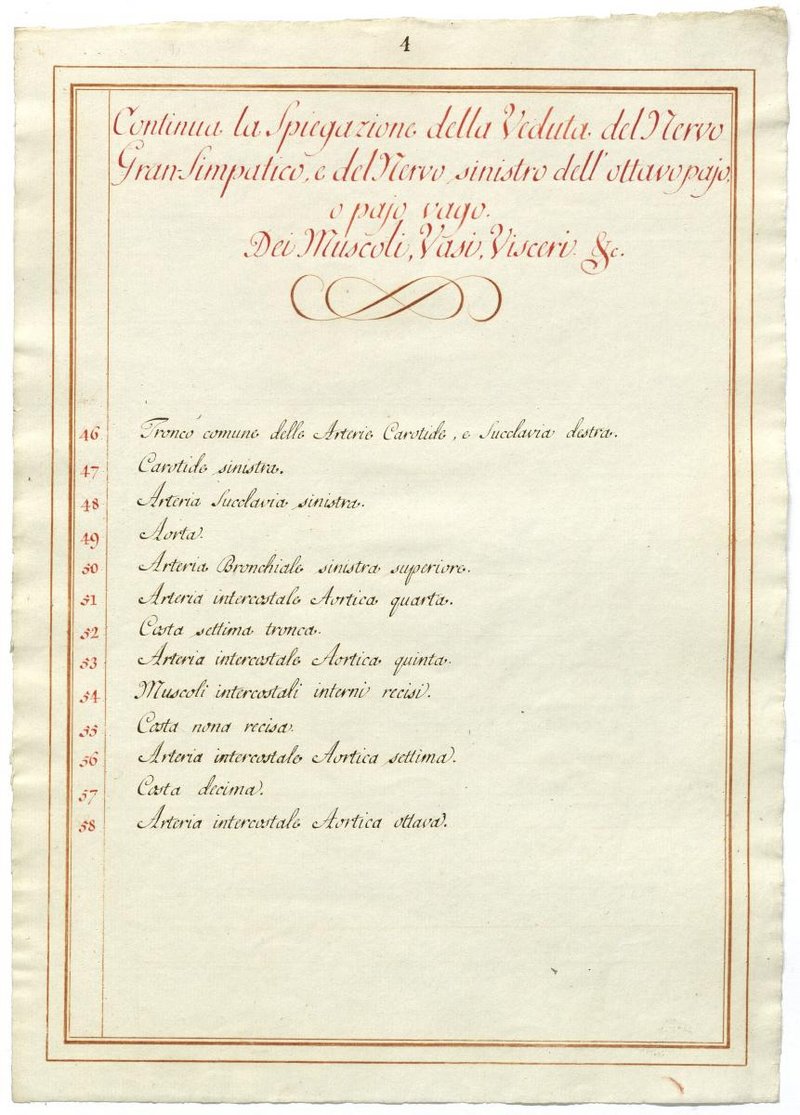 4
Continua la Spiegazione della Veduta del Nervo
Gran Simpatico, e del Nervo sinistro dell'ottavo pajo,
o pajo vago.
Dei Muscoli, Vasi, Visceri &c.
46 Tronco comune delle Arterie Carotide, e Succlavia destra.
47 Carotide sinistra.
48 Arteria Succlavia sinistra.
49 Aorta.
50 Arteria Bronchiale sinistra superiore.
51 Arteria intercostale Aortica quarta.
52 Costa settima tronca.
53 Arteria intercostale Aortica quinta.
54 Muscoli intercostali interni recisi.
55 Costa nona recisa.
56 Arteria intercostale Aortica settima.
57 Costa decima.
58 Arteria intercostale Aortica ottava.